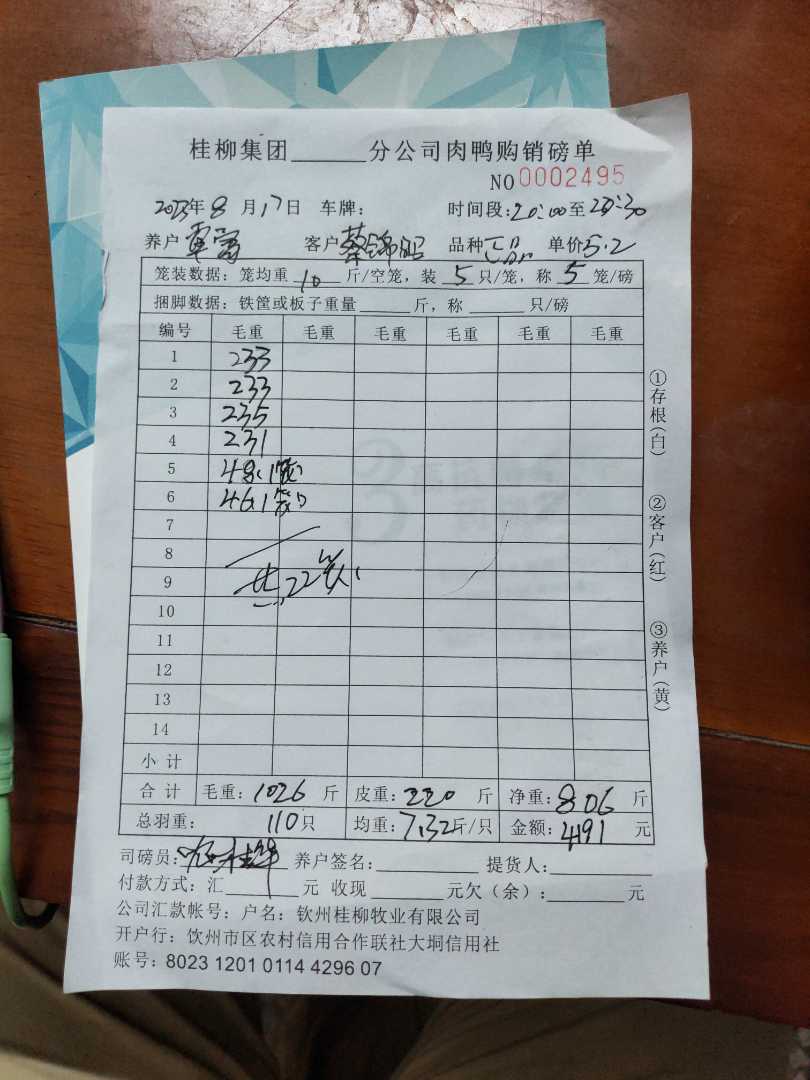 桂柳集团______分公司肉鸭购销磅单
NO 0002495
2023年8月17日 车牌: 时间段:20:00至20:30
养户 覃富 客户 蔡锦 品种 正品 单价 5.2
笼装数据:笼均重 10 斤/空笼,装 5 只/笼,称 5 笼/磅
捆脚数据:铁筐或板子重量______斤,称______只/磅
编号 毛重 毛重 毛重 毛重 毛重 毛重
1 233
2 233
3 235
4 231
5 48(1笼)
6 46(1笼)
7
8
9 共22笼
10
11
12
13
14
小计
合计 毛重:1026斤 皮重:220斤 净重:806斤
总羽重: 110只 均重:7.32斤/只 金额:4191元
司磅员: 养户签名: 提货人:
付款方式:汇______元 收现______元欠(余):______元
公司汇款帐号:户名:钦州桂柳牧业有限公司
开户行:饮州市区农村信用合作联社大垌信用社
账号:8023 1201 0114 4296 07
①存根(白)
②客户(红)
③养户(黄)